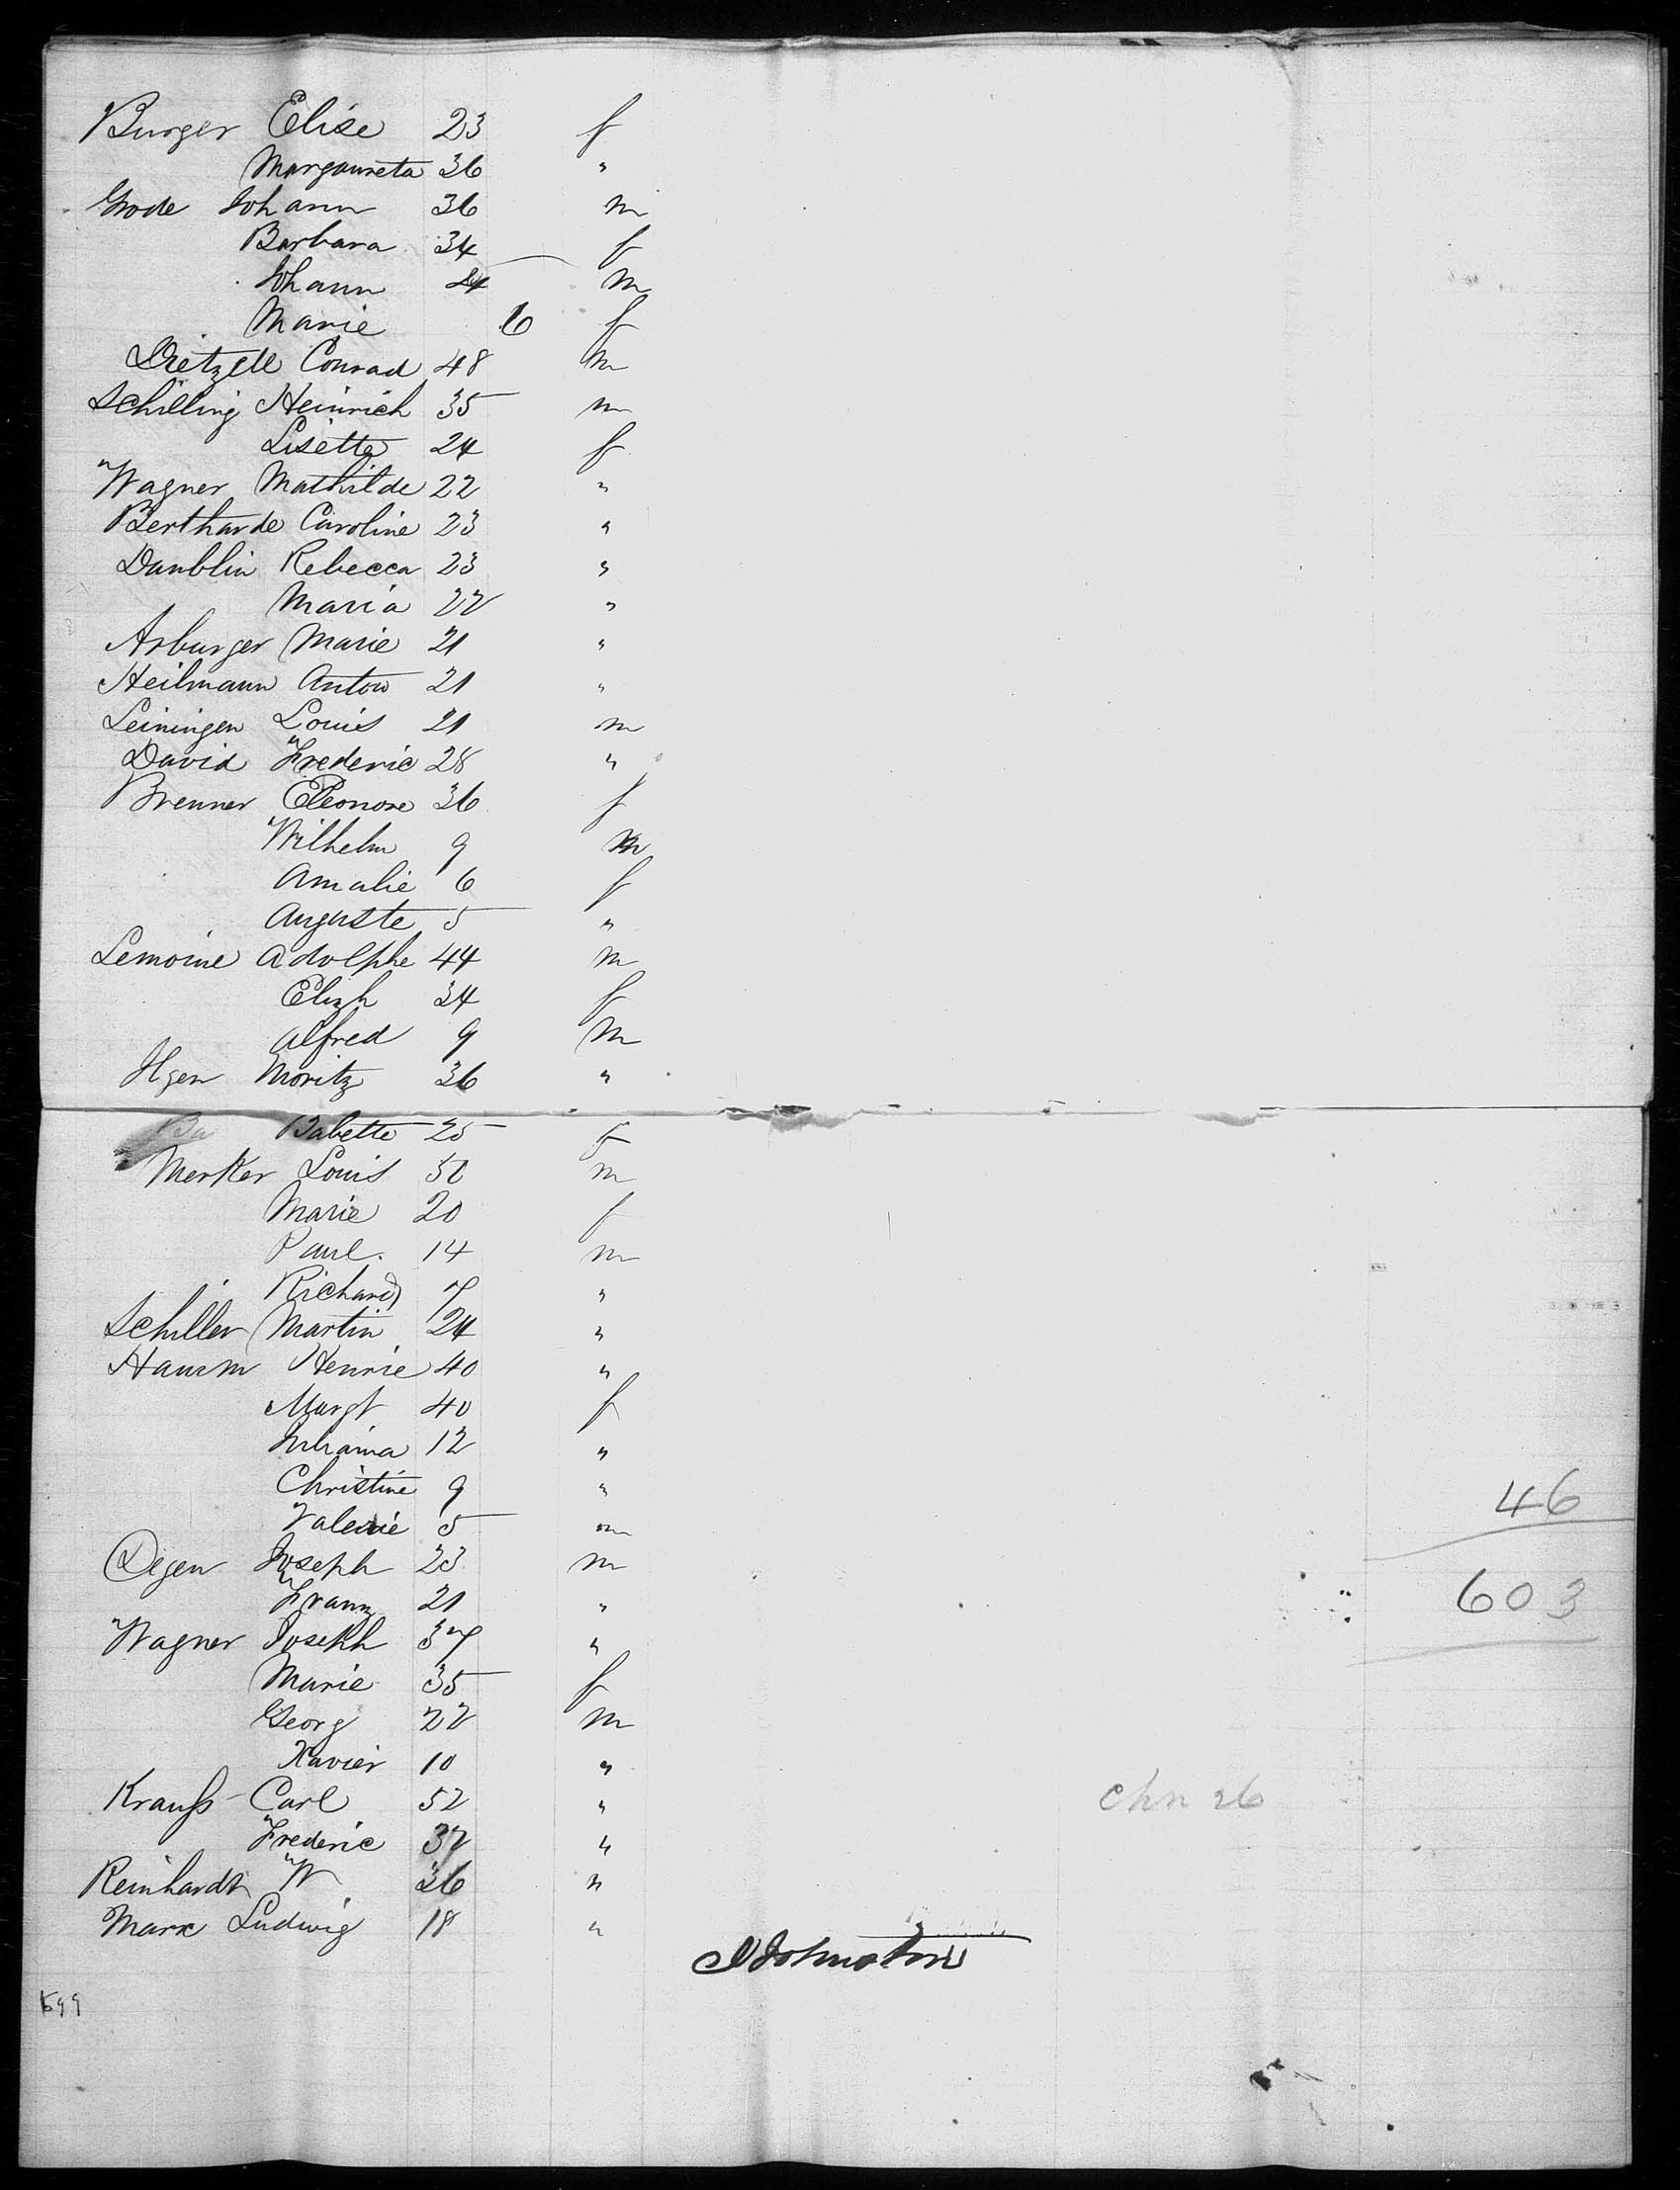 Burger Elise 23 f
Margaureta 36 "
Grode Johann 36 m
Barbara 34 f
Johann 24 m
Marie 6 f
Dietzell Conrad 48 m
Schilling Heinrich 35 m
Lisette 24 f
Wagner Mathilde 22 "
Bertharde Caroline 23 "
Danblin Rebecca 23 "
Maria 22 "
Arburger Marie 21 "
Heilmann Anton 21 "
Leiningen Louis 21 m
David Frederic 28 "
Brenner Eleonore 36 f
Wilhelm 9 m
Amalie 6 f
Auguste 5 "
Lemoine Adolphe 44 m
Elizh 34 f
Alfred 9 m
Ilgen Moritz 36 "
Ba Babette 25 f
Merker Louis 50 m
Marie 20 f
Paul. 14 m
Richard 7 "
Schiller Martin 24 "
Hamm Henrie 40 "
Margt 40 f
12 "
Christine 9 "
Valerie 5 m
46
Degen Joseph 23 m
Franz 21 "
603
Wagner Joseph 37 "
Marie 35 f
Georg 22 m
Xavier 10 "
Krauß Carl 52 "
chn 26
Frederic 32 "
Reinhardt W 36 "
Marx Ludwig 18 "
J Johnston
599